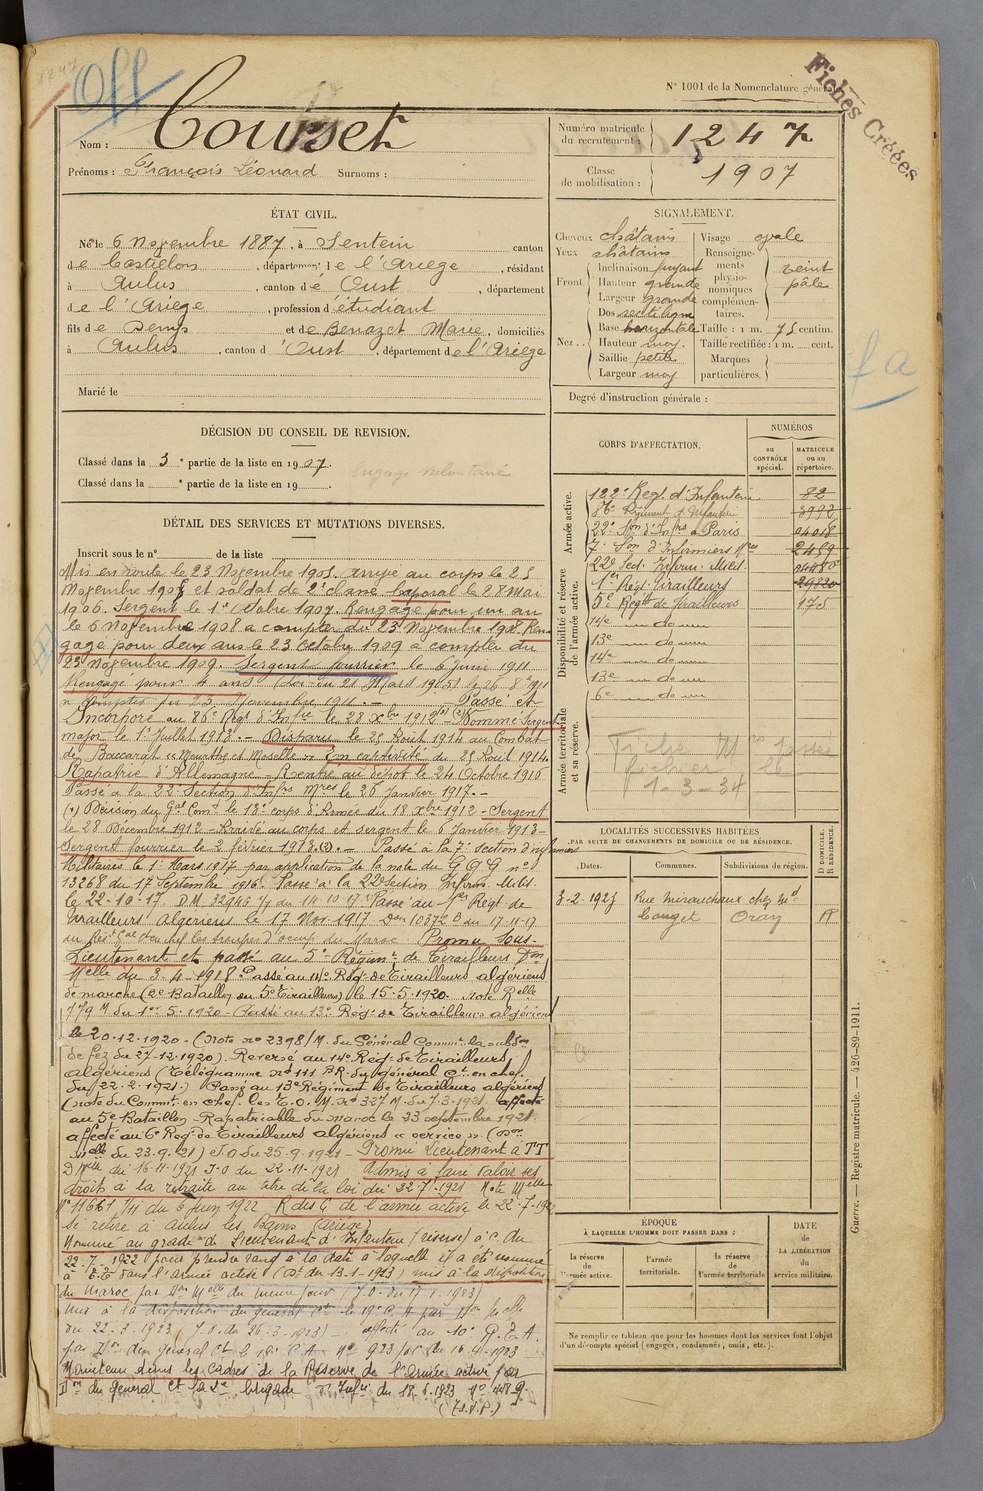 1247
Off
N° 1001 de la Nomenclature géné
Fiches Créées
Nom : Courset
Prénoms : François Léonard Surnoms :
Numéro matricule du recrutement : 1247
Classe de mobilisation : 1907
ÉTAT CIVIL.
Né le 6 Novembre 1887, à Sentein canton
de Castillon, département de l'Ariège, résidant
à Aulus, canton de Oust, département
de l'Ariège, profession d'étudiant
fils de Denys et de Benazet Marie, domiciliés
à Aulus, canton d'Oust, département de l'Ariège
Marié le
SIGNALEMENT.
Cheveux châtains Visage ovale
Yeux châtains
Front. Inclinaison fuyant
Hauteur grande
Largeur grande
Nez.. Dos rectiligne
Base horizontale
Hauteur moy.
Saillie petite
Largeur moy
Renseignements physionomiques complémentaires. teint pâle
Taille : 1 m. 75 centim.
Taille rectifiée : 1 m. cent.
Marques particulières.
fa
Degré d'instruction générale :
DÉCISION DU CONSEIL DE REVISION.
Classé dans la 3e partie de la liste en 1907. engagé volontaire
Classé dans la e partie de la liste en 19
CORPS D'AFFECTATION.
NUMÉROS
au CONTRÔLE spécial.
MATRICULE ou au répertoire.
Armée active.
122e Régt d'Infanterie 82
86e Régiment d'Infanterie 3992
22e Son d'Infrs à Paris 04018
7e Son d'Infirmiers Mres 2459
Disponibilité et réserve de l'armée active.
22e Sect. Infirm. Milit. 04480
1er Régt Tirailleurs 29230
5e Régt de Tirailleurs 175
14e — de —
13e — de —
14e — de —
13e — de —
6e — de —
Armée territoriale et sa réserve.
Fiche Mle passé
fichier
1-3-34
DÉTAIL DES SERVICES ET MUTATIONS DIVERSES.
Inscrit sous le n° de la liste
Mis en route le 23 Novembre 1905. Arrivé au corps le 25
Novembre 1905 et soldat de 2e classe. Caporal le 28 Mai
1906. Sergent le 1er Octobre 1907. Rengagé pour un an
le 6 Novembre 1908 à compter du 23 Novembre 1908. Ren-
gagé pour deux ans le 23 Octobre 1909 à compter du
23 Novembre 1909. Sergent fourrier le 6 juin 1911
Rengagé pour 4 ans (Loi du 21 Mars 1905) le 26 8bre 1911
à compter du 23 Novembre 1911. — Passé et
Incorporé au 86e Régt d'Infie le 28 Xbre 1912 Nommé Sergent
major le 1er Juillet 1913. — Disparu le 25 Août 1914 au Combat
de Baccarat "Meurthe et Moselle" En captivité du 25 Août 1914.
Rapatrié d'Allemagne. Rentré au dépôt le 24 Octobre 1916
Passé à la 22e Section d'Infrs Mres le 26 Janvier 1917. —
Décision du Gal Comt le 13e corps d'Armée du 18 Xbre 1912 - Sergent
le 28 Décembre 1912 - Arrivé au corps et sergent le 6 Janvier 1913 —
Sergent fourrier le 2 février 1913. — Passé à la 7e section d'infirmiers
Militaires le 1er Mars 1917 par application de la note du G Q G n°
13268 du 17 Septembre 1916. Passé à la 22e Section Infirm. Milit.
le 22-10-17. D.M. 32946 1/7 du 14-10-17 Passé au 1er Régt de
Tirailleurs algériens le 17 Nov. 1917. Don 10372 B du 17-11-17
du Rést Gal Ct en chef les troupes d'occup du Maroc. Promu Sous-
Lieutenant et passé au 5e Régimt de Tirailleurs Don
Melle du 3-4-1918. Passé au 14e Régt de Tirailleurs algériens
de marche (2e Bataillon du 5e Tirailleurs) le 15.5.1920. note Relle
779 M du 1er 5.1920 - Passé au 13e Régt de Tirailleurs algériens
le 20.12.1920 - (Note n° 2398/M. du Général Commt la subdon
de fez du 27-12-1920). Reversé au 14e Régt de Tirailleurs
algériens (Télégramme n° 111 BR du général Ct en chef
du 22.2.1921.) Passé au 13e Régiment de Tirailleurs algériens
(note du Commt en chef les T.O. M. n° 327 M du 7.3.1921 affecté
au 5e Bataillon - Rapatriable du maroc le 23 septembre 1921.
affecté au 6e Régt de Tirailleurs algériens "service" (Don
Melle du 23.9.21) J.O du 25.9.1921 - Promu Lieutenant à TT
D Melle du 16-11-1921 J.O du 22-11-1921 Admis à faire valoir ses
droits à la retraite au titre de la loi du 22-7-1921 Note Melle
N° 11661 1/11 du 6 Juin 1922 R des C de l'armée active le 22-7-1922
Se retire à Aulus les Bains (Ariège)
Nommé au grade de Lieutenant d'Infanterie (réserve) à c. du
22-7-1922 pour prendre rang à la date à laquelle il a été nommé
à T.T. dans l'armée active (D. du 13-1-1923) mis à la disposition
du Maroc par Don Melle du même jour (J.O. du 17-1-1923)
Mis à la disposition du général Ct le 19e C.A par Don Melle
du 22-3-1923 (J.O. du 26-3-1923) - affecté au 10e R.T.A.
par Don du général Ct le 19e C.A. N° 923 du 16-4-1923
Maintenu dans les cadres de la Réserve de l'armée active par
Don du général Ct la 5e brigade d'Infie du 18.6.1923 N° 448 g.
(T.S.V.P.)
LOCALITÉS SUCCESSIVES HABITÉES
PAR SUITE DE CHANGEMENTS DE DOMICILE OU DE RÉSIDENCE.
Dates. Communes. Subdivisions de région. D DOMICILE. R RÉSIDENCE.
3-2-1925 Rue Mirauchaux chez Md
Couget Oran R
ÉPOQUE
À LAQUELLE L'HOMME DOIT PASSER DANS :
la réserve de l'armée active.
l'armée territoriale.
la réserve de l'armée territoriale
DATE de LA LIBÉRATION du service militaire.
Ne remplir ce tableau que pour les hommes dont les services font l'objet
d'un décompte spécial (engagés, condamnés, omis, etc.).
Guerre. — Registre matricule. — 426-89-1911.